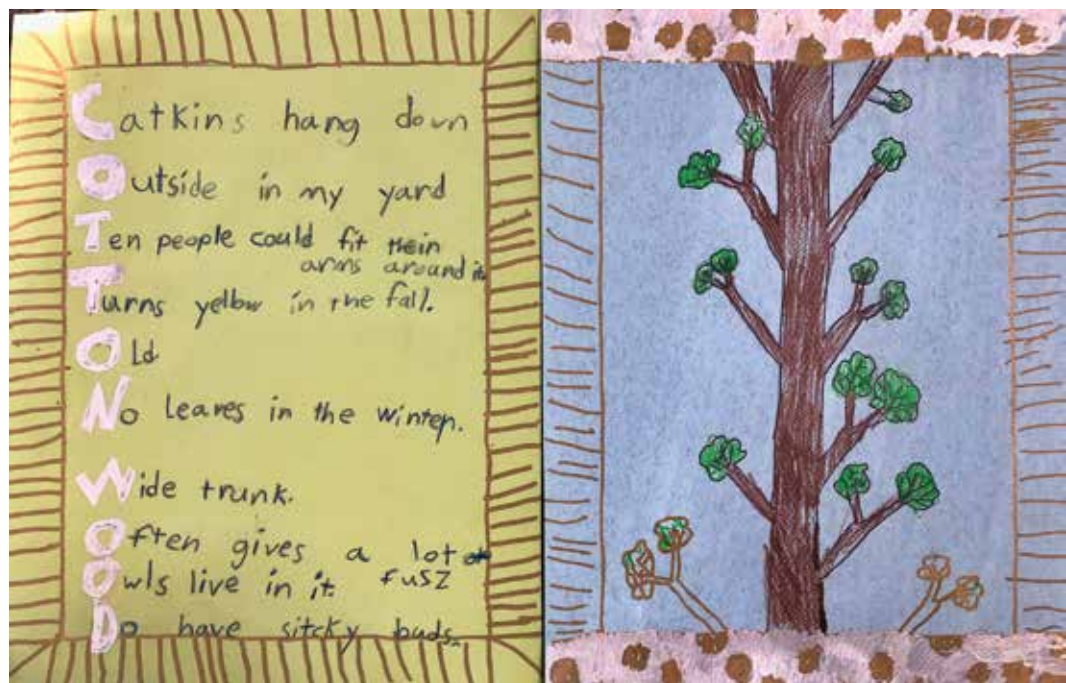 Catkins hang down
Outside in my yard
Ten people could fit their
arms around it
Turns yellow in the fall.
Old
No leaves in the winter.
Wide trunk.
Often gives a lot of
fusz
Owls live in it.
Do have sitcky buds.